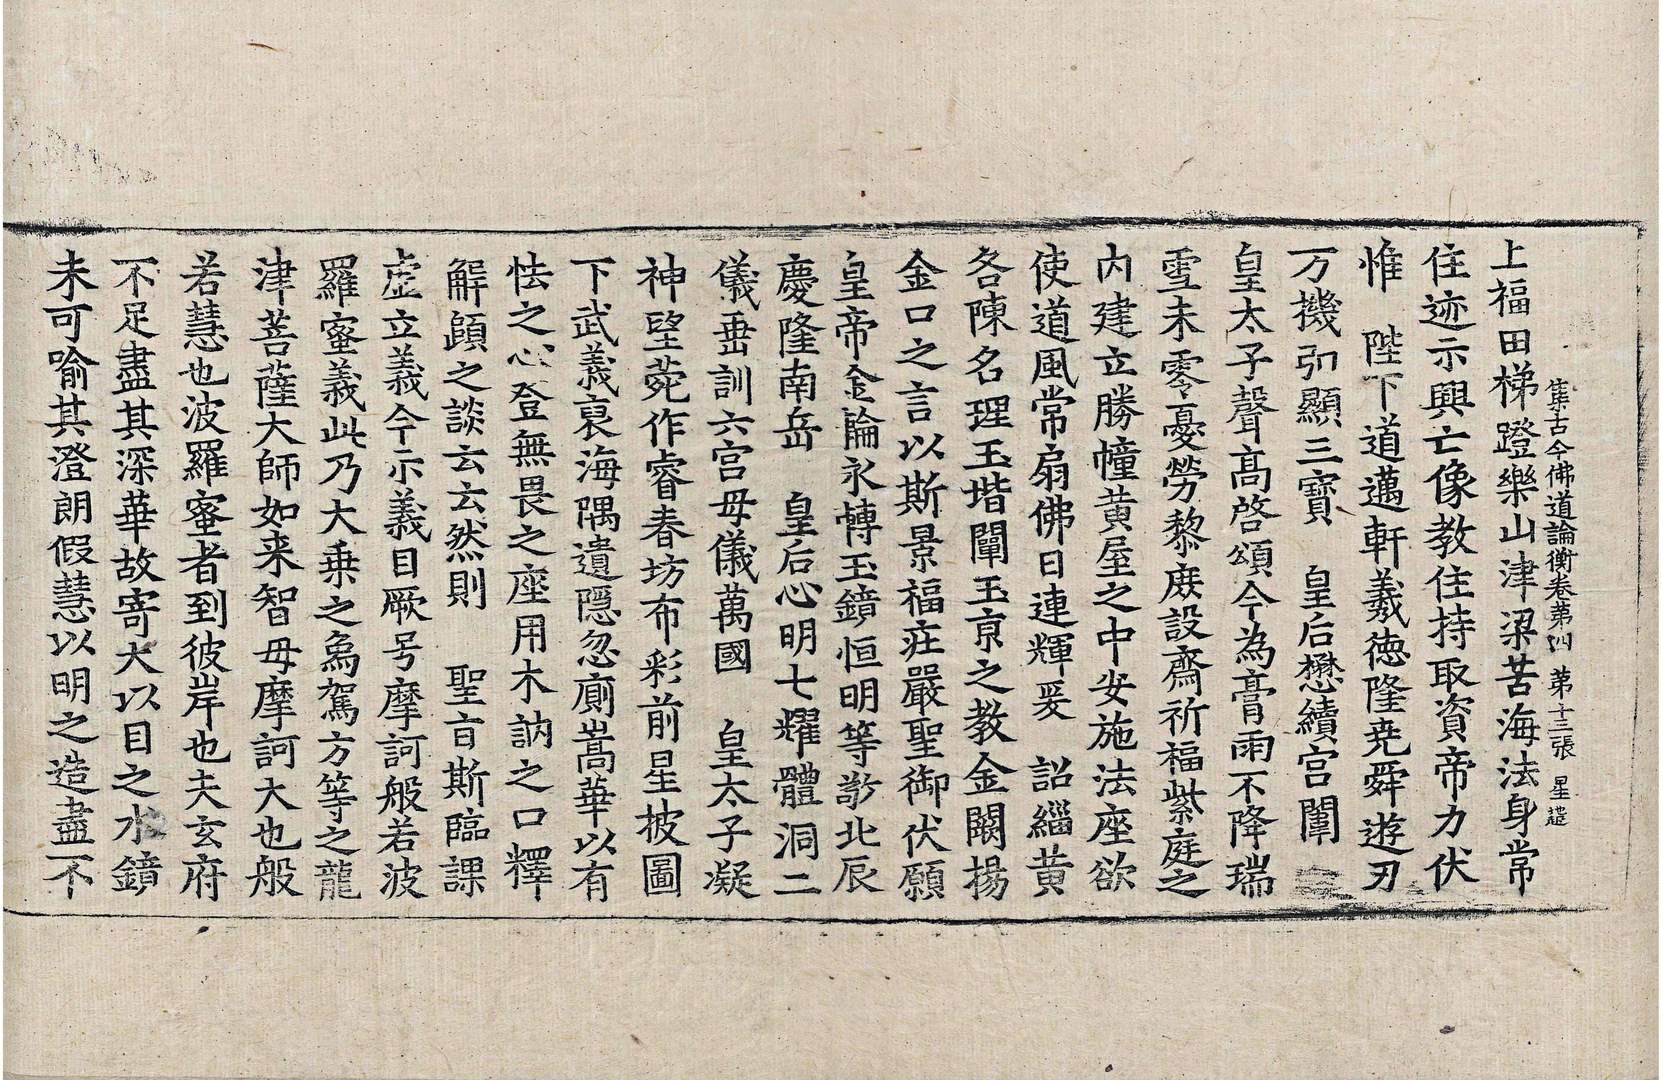 集古今佛道論衡卷第四 第十三張 星
上福田梯蹬樂山津梁苦海法身常
住迹示興亡像教住持取資帝力伏
惟 陛下道邁軒羲德隆堯舜遊刃
万機引顯三寶 皇后懋續宮闈
皇太子聲高啓頌今為膏雨不降瑞
雪未零憂勞黎庶設齋祈福紫庭之
内建立勝幢黃屋之中安施法座欲
使道風常扇佛日連輝爰 詔緇黃
各陳名理玉堦闡玉京之教金闕揚
金口之言以斯景福庄嚴聖御伏願
皇帝金輪永轉玉鏡恒明等敬北辰
慶隆南岳 皇后心明七耀體洞二
儀垂訓六宮母儀萬國 皇太子凝
神望菀作睿春坊布彩前星披圖
下武義裒海隅遺隱忽廁嵩華以有
怯之心登無畏之座用木訥之口釋
解頤之談云云然則 聖旨斯臨課
虛立義今示義目厥号摩訶般若波
羅蜜義此乃大乗之象駕方等之龍
津菩薩大師如来智母摩訶大也般
若慧也波羅蜜者到彼岸也夫玄府
不足盡其深華故寄大以目之水鏡
未可喻其澄朗假慧以明之造盡不